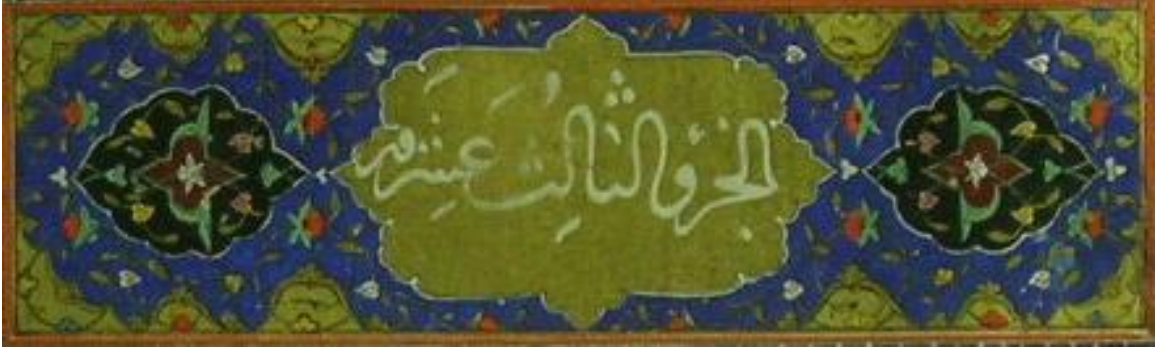 الجزؤ الثالِثُ عَشَرَ من